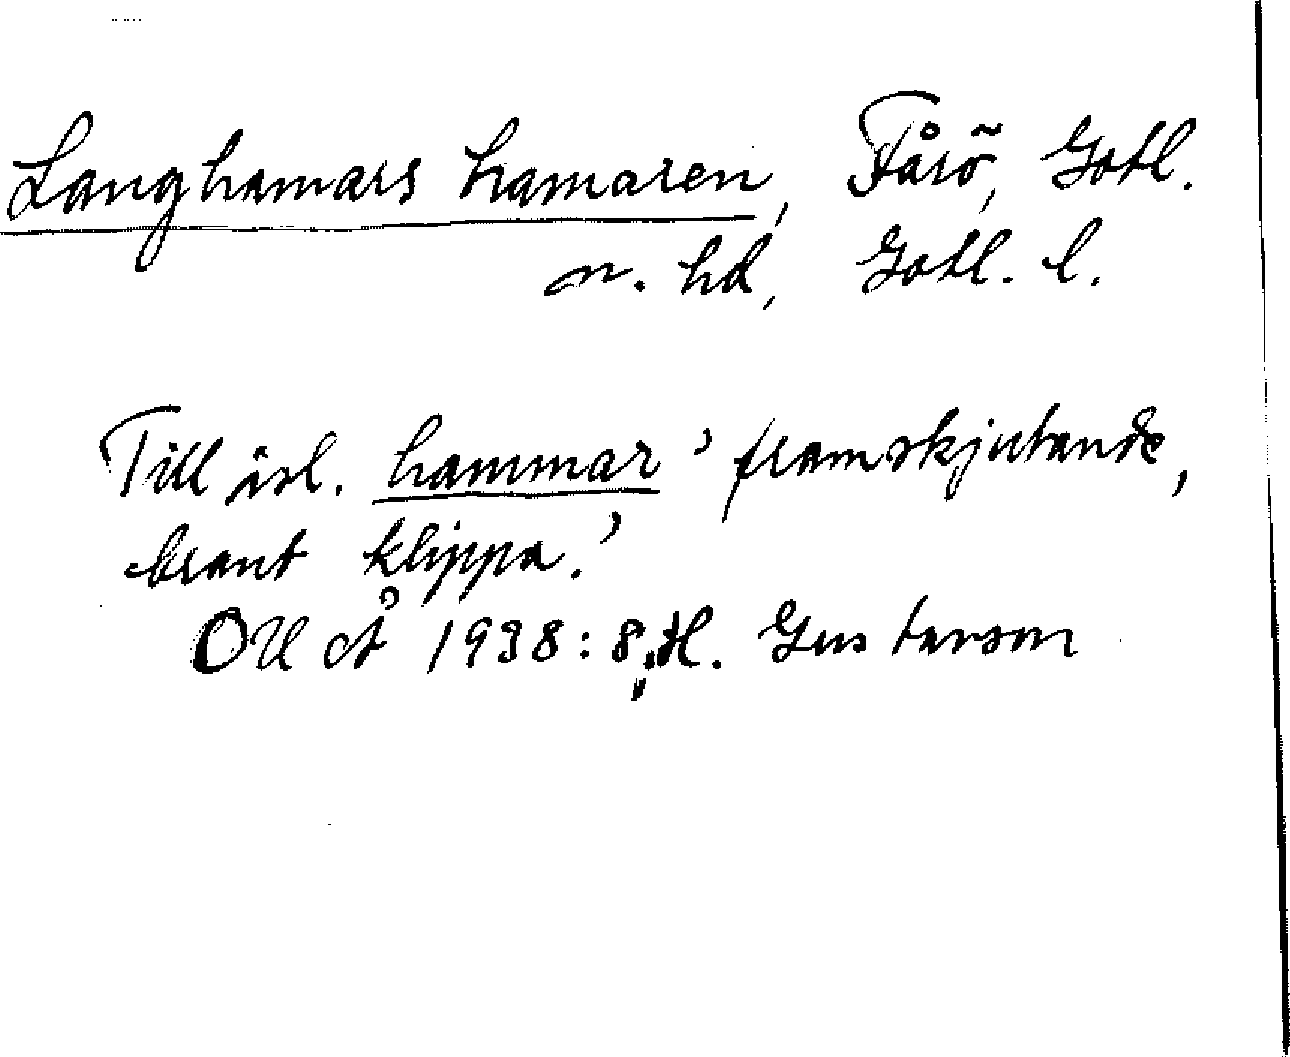 Langhamars hamaren, Fårö, Gotl.
n. hd, Gotl. l.
Till isl. hammar ’framskjutande,
brant klippa.’
OUÅ 1938: 8, H. Gustavson